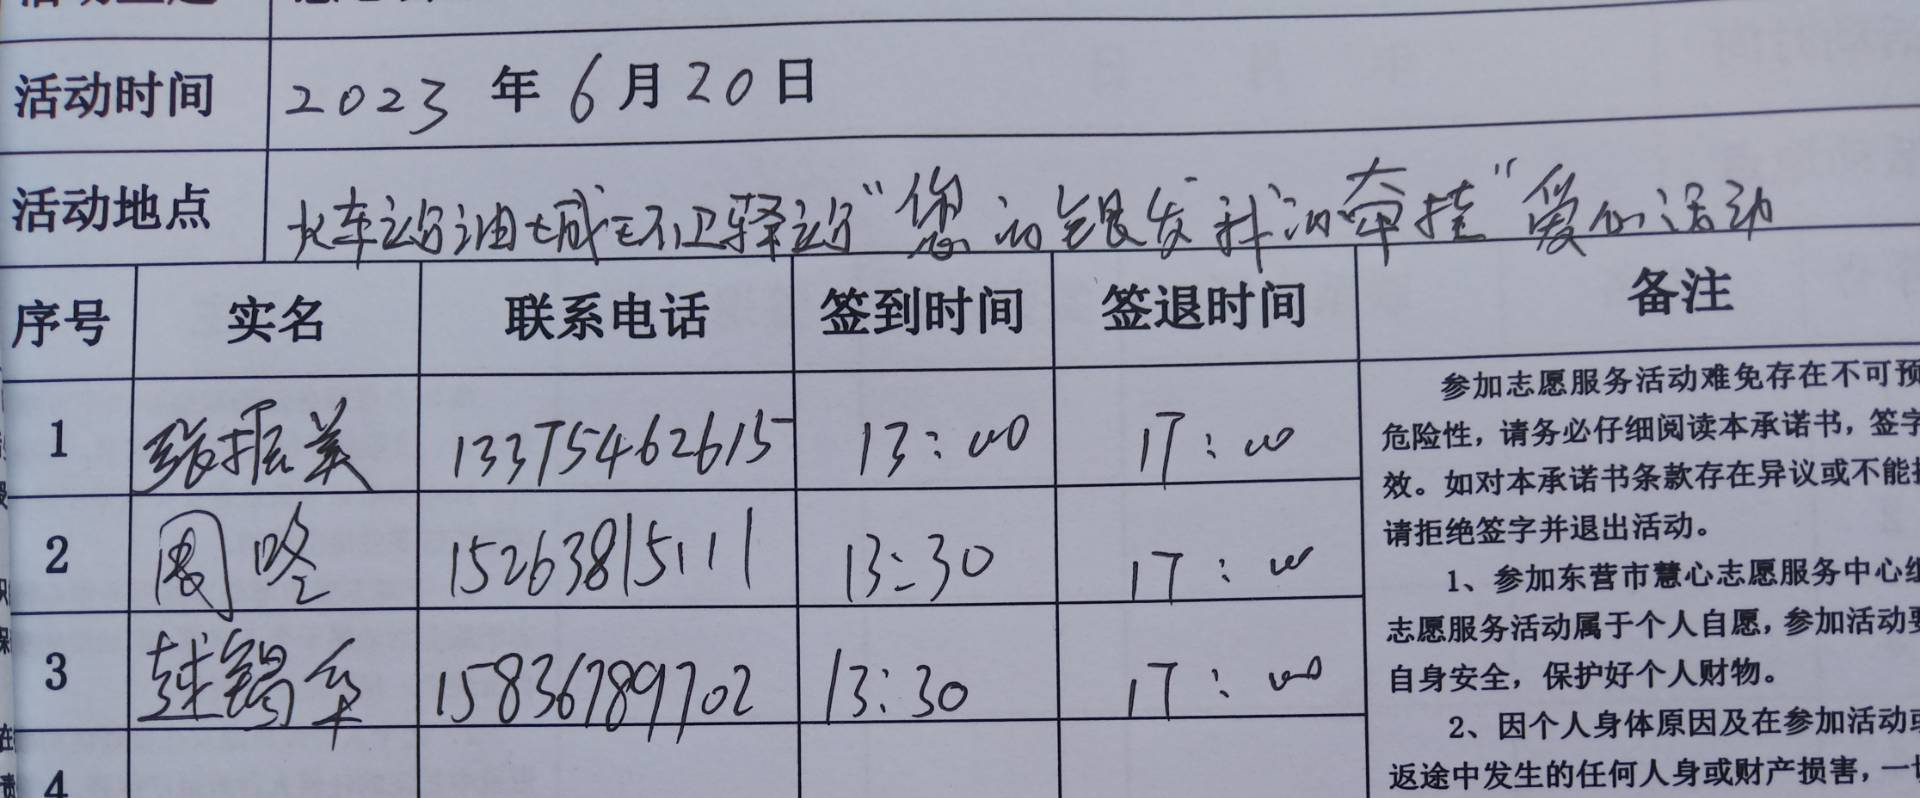 活动时间 2023 年 6 月 20 日
活动地点 火车站油城环卫驿站“您的银发 我的牵挂”爱心活动
序号 实名 联系电话 签到时间 签退时间 备注
1 张振美 13375462615 13:00 17:00
2 周 15263815111 13:30 17:00
3 15836789702 13:30 17:00
4
参加志愿服务活动难免存在不可预
危险性，请务必仔细阅读本承诺书，签字
效。如对本承诺书条款存在异议或不能
请拒绝签字并退出活动。
1、参加东营市慧心志愿服务中心组
志愿服务活动属于个人自愿，参加活动要
自身安全，保护好个人财物。
2、因个人身体原因及在参加活动或
返途中发生的任何人身或财产损害，一切